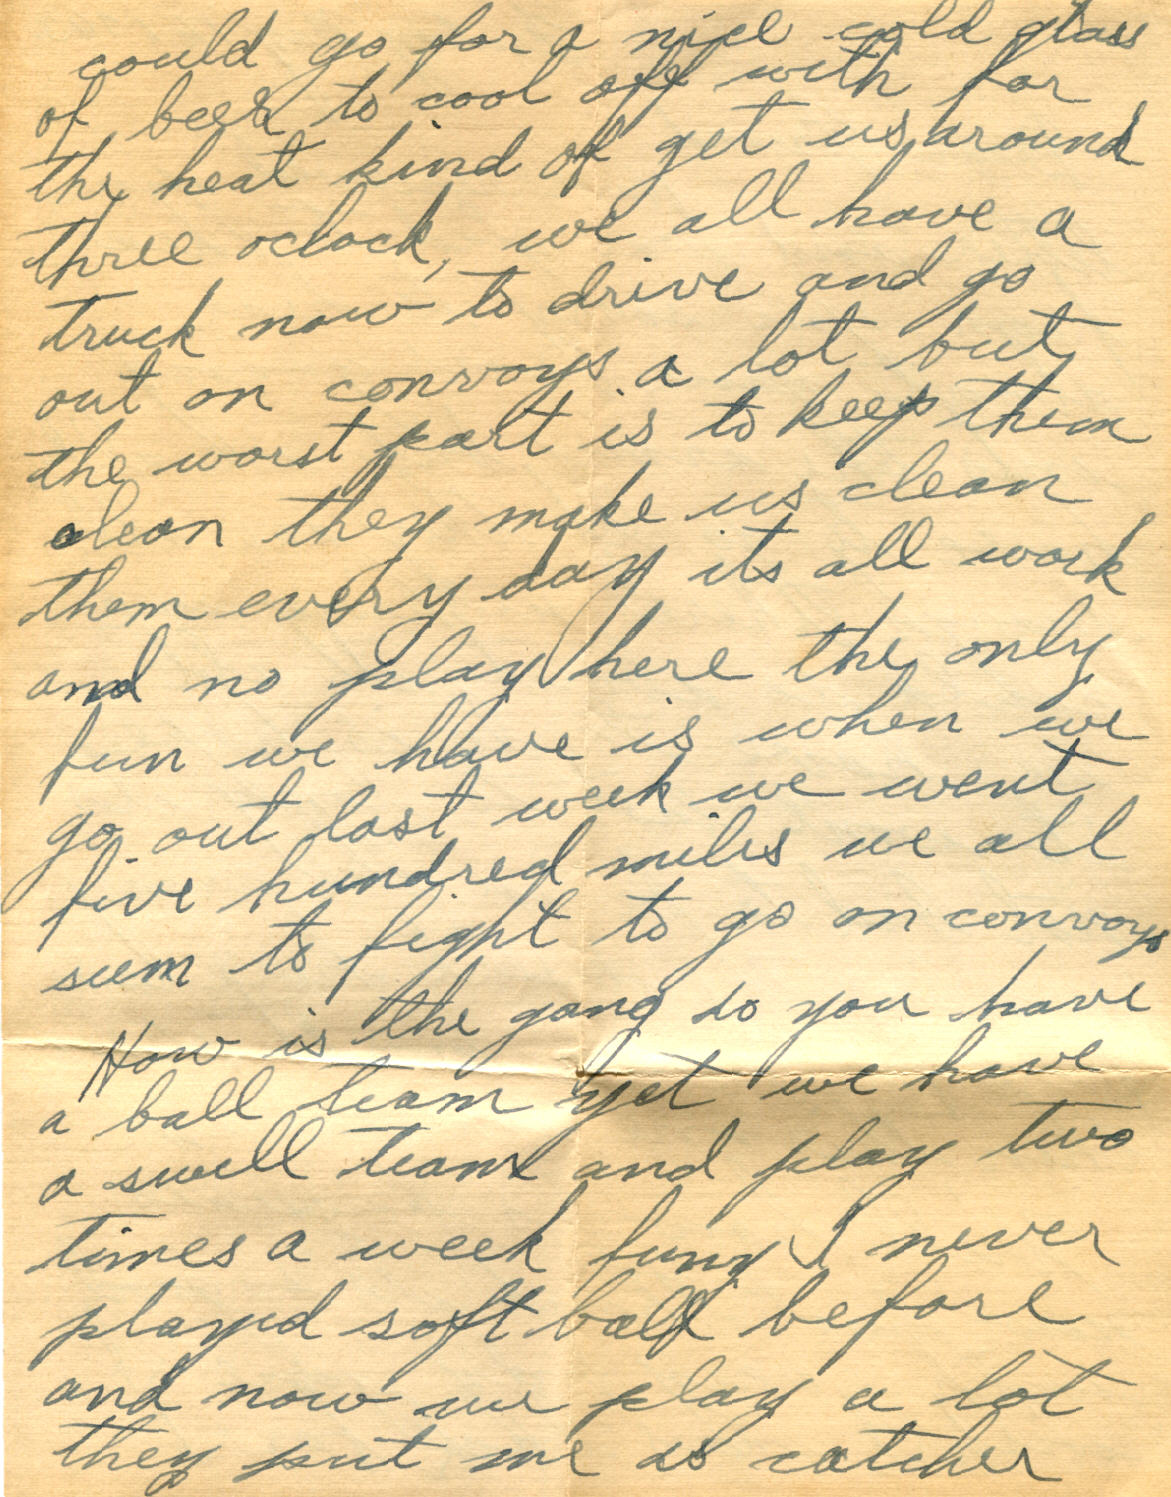 could go for a nice cold glass
of beer to cool off with for
the heat kind of get us around
three oclock, we all have a
truck now to drive and go
out on convoys a lot but
the worst part is to keep them
clean they make us clean
them every day its all work
and no play here the only
fun we have is when we
go out last week we went
five hundred miles we all
seem to fight to go on convoys
How is the gang do you have
a ball team yet we have
a swell team and play two
times a week funy I never
played soft ball before
and now we play a lot
they put me as catcher